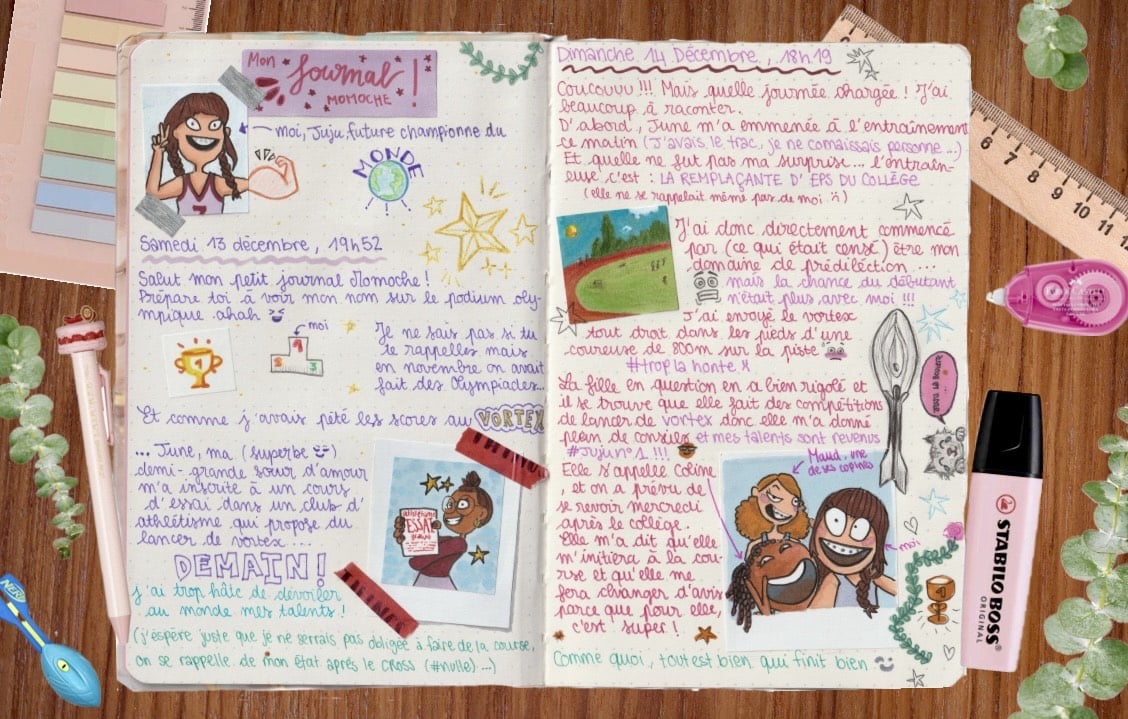 Mon
Journal !
MOMOCHE
moi, Juju, future championne du
MONDE
Samedi 13 décembre, 19h52
Salut mon petit journal Momoche !
Prépare toi à voir mon nom sur le podium oly-
mpique ahah
moi
1
2
3
Je ne sais pas si tu
te rappelles mais
en novembre on avait
fait des Olympiades...
Et comme j'avais pété les scores au VORTEX
... June, ma (superbe)
demi-grande sœur d'amour
m'a inscrite à un cours
d'essai dans un club d'
athlétisme qui propose du
lancer de vortex ...
DEMAIN !
athlétisme
ESSAI
gratuit
j'ai trop hâte de dévoiler
au monde mes talents !
(j'espère juste que je ne serrais pas obligée à faire de la course,
on se rappelle de mon état après le cross (#nulle) ...)
Dimanche 14 Décembre, 18h19
Coucouuu !!! Mais quelle journée chargée ! J'ai
beaucoup à raconter.
D'abord, June m'a emmenée à l'entraînement
ce matin (J'avais le trac, je ne connaissais personne ...)
Et quelle ne fut pas ma surprise... l'entraîn-
euse c'est : LA REMPLAÇANTE D'EPS DU COLLÈGE
(elle ne se rappelait même pas de moi :))
J'ai donc directement commencé
par (ce qui était censé) être mon
domaine de prédilection ...
mais la chance du débutant
n'était plus avec moi !!!
J'ai envoyé le vortex
tout droit dans les pieds d'une
coureuse de 800m sur la piste
#trop la honte
La fille en question en a bien rigolé et
il se trouve que elle fait des compétitions
de lancer de vortex donc elle m'a donné
plein de conseils et mes talents sont revenus
#Juju n°1 !!!
Elle s'appelle Coline
, et on a prévu de
se revoir mercredi
après le collège.
Elle m'a dit qu'elle
m'initiera à la cou-
rse et qu'elle me
fera changer d'avis
parce que pour elle,
c'est super !
Maud, une
de ses copines
moi
Comme quoi, tout est bien qui finit bien
6 7 8 9 10 11
STABILO BOSS
ORIGINAL
NERF